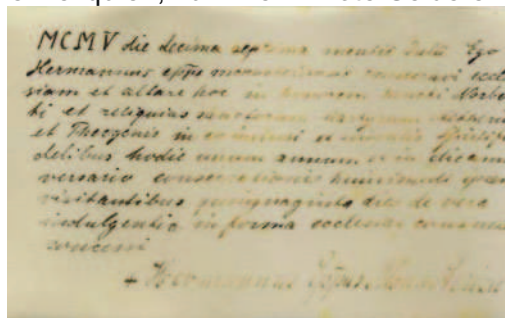 MCMV die decima septima mensis Julii Ego
Hermannus epps monasteriensis consecravi eccle
siam et altare hoc in honorem Sancti Norber
ti et reliquias sanctorum martyrum
et Theogenis in eo inclusi et singulis Christifi
delibus hodie unum annum et in die anni
versario consecrationis huiusmodi ipsam
visitantibus quinquaginta dies de vera
indulgentia in forma ecclesiae consueta
concessi
+ Hermannus Eppus